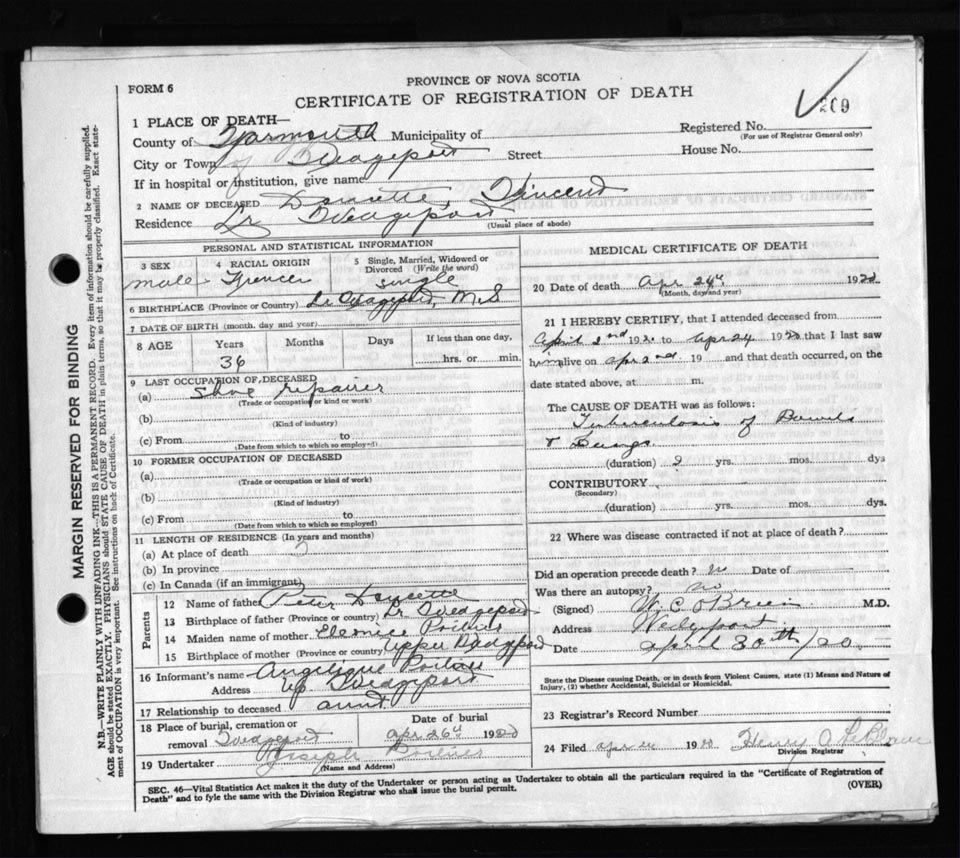 PROVINCE OF NOVA SCOTIA
FORM 6
CERTIFICATE OF REGISTRATION OF DEATH
209
1 PLACE OF DEATH—
County of Yarmouth Municipality of
Registered No.
(For use of Registrar General only)
City or Town of Wedgeport Street
House No.
If in hospital or institution, give name
2 NAME OF DECEASED Doucette, Vincent
Residence Lr Wedgeport
(Usual place of abode)
PERSONAL AND STATISTICAL INFORMATION
3 SEX
male
4 RACIAL ORIGIN
French
5 Single, Married, Widowed or Divorced (Write the word)
single
6 BIRTHPLACE (Province or Country) Lr Wedgeport, N.S
7 DATE OF BIRTH (month, day and year)
8 AGE Years Months Days If less than one day,
36
hrs. or min.
9 LAST OCCUPATION OF DECEASED
(a) Shoe repairer
(Trade or occupation or kind or work)
(b)
(Kind of industry)
(c) From to
(Date from which to which so employed)
10 FORMER OCCUPATION OF DECEASED
(a)
(Trade or occupation or kind of work)
(b)
(Kind of industry)
(c) From to
(Date from which to which so employed
11 LENGTH OF RESIDENCE (In years and months)
(a) At place of death
(b) In province
(c) In Canada (if an immigrant)
Parents
12 Name of father Peter Doucette
13 Birthplace of father (Province or country) Lr Wedgeport
14 Maiden name of mother
15 Birthplace of mother (Province or country) Upper Wedgeport
16 Informant's name Angelique
Address Up Wedgeport
17 Relationship to deceased aunt
18 Place of burial, cremation or removal Wedgeport
Date of burial
Apr 26th 1920
19 Undertaker Joseph
(Name and Address)
MEDICAL CERTIFICATE OF DEATH
20 Date of death Apr 24th 192
(Month, day and year)
21 I HEREBY CERTIFY, that I attended deceased from
April 2nd 192 to Apr 24 192 that I last saw
him alive on Apr 2nd 19 and that death occurred, on the
date stated above, at m.
The CAUSE OF DEATH was as follows:
Tuberculosis of Bowels
& Lungs
(duration) ? yrs. mos. dys
CONTRIBUTORY
(Secondary)
(duration) yrs. mos. dys.
22 Where was disease contracted if not at place of death?
Did an operation precede death? no Date of
Was there an autopsy? no
(Signed) W. C. O'Brien M.D.
Address Wedgeport
Date April 30th/20
State the Disease causing Death, or in death from Violent Causes, state (1) Means and Nature of
Injury, (2) whether Accidental, Suicidal or Homicidal.
23 Registrar's Record Number
24 Filed Apr 19 Henry A LeBlanc
Division Registrar
SEC. 46—Vital Statistics Act makes it the duty of the Undertaker or person acting as Undertaker to obtain all the particulars required in the "Certificate of Registration of
Death" and to fyle the same with the Division Registrar who shall issue the burial permit.
(OVER)
MARGIN RESERVED FOR BINDING
N.B.—WRITE PLAINLY WITH UNFADING INK—THIS IS A PERMANENT RECORD. Every item of information should be carefully supplied.
AGE should be stated EXACTLY. PHYSICIANS should STATE CAUSE OF DEATH in plain terms, so that it may be properly classified. Exact state-
ment of OCCUPATION is very important. See instructions on back of Certificate.